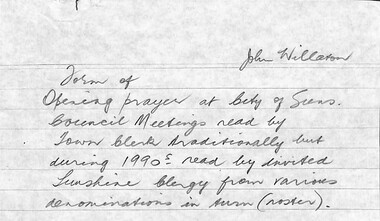 John Willaton
Form of
Opening prayer at City of Suns.
Council Meetings read by
Town Clerk traditionally but
during 1990s read by invited
Sunshine Clergy from various
denominations in turn (roster).